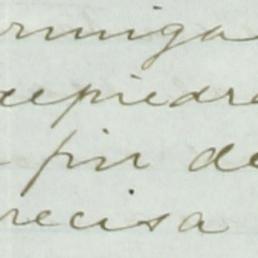 rmiga
epiedra
fin de
recisa